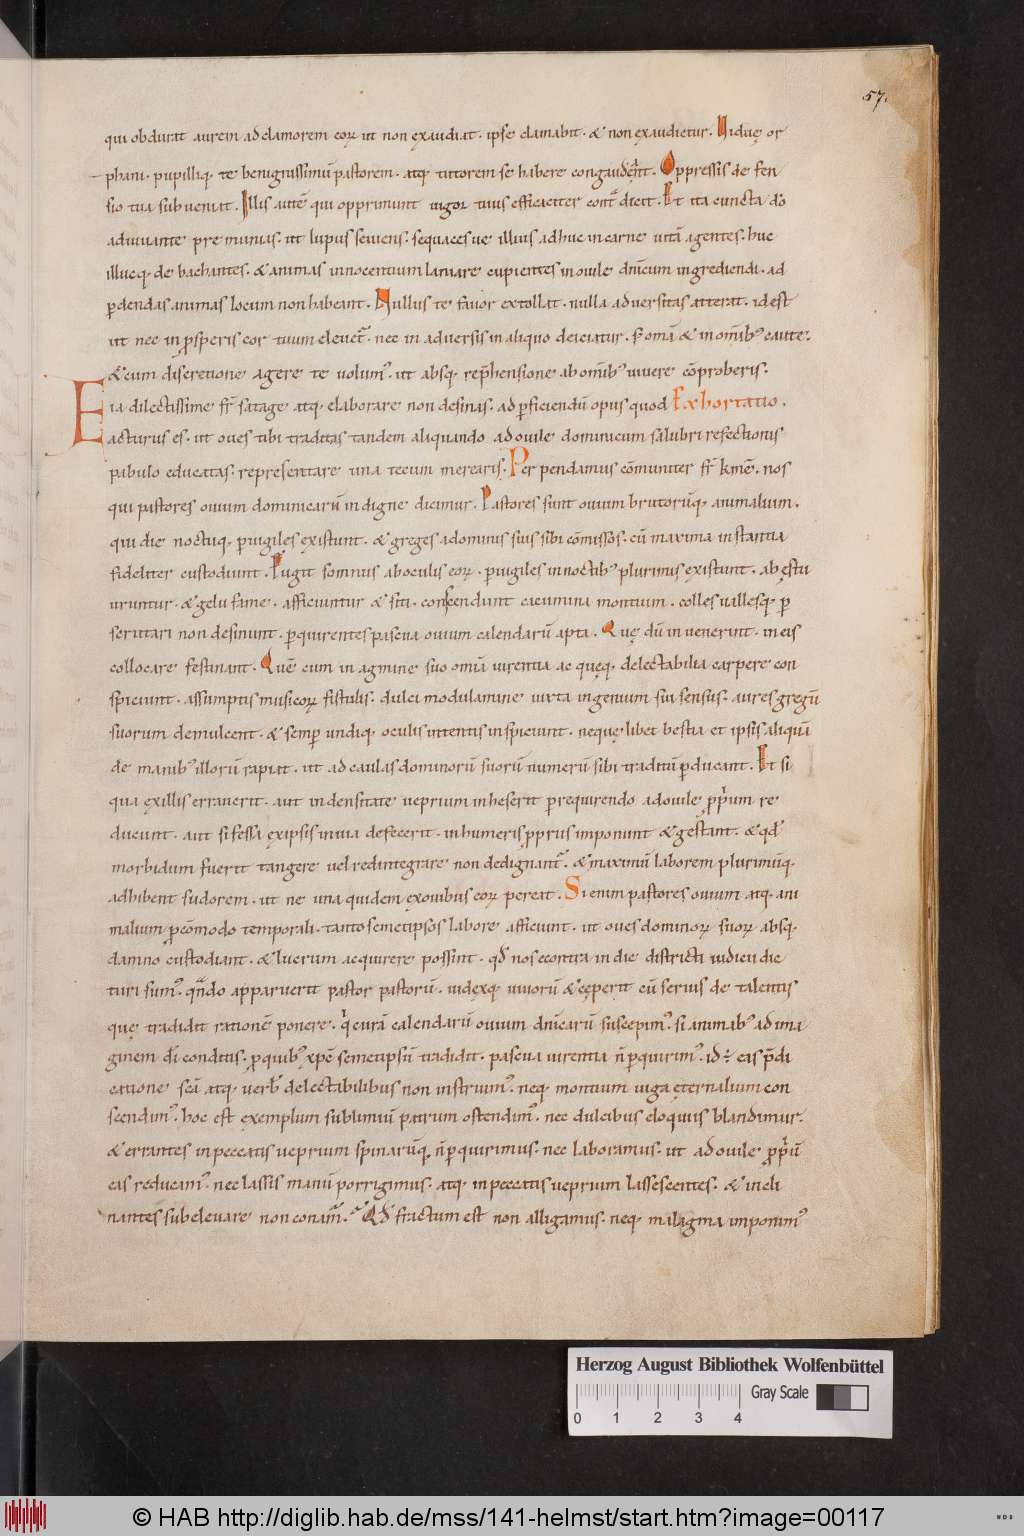 57.
qui obdurat aurem ad clamorem eoꝝ ut non exaudiat. ipse clamabit. & non exaudietur. Uiduę or
phani. pupilliq; te benignissimū pastorem. atq; tutorem se habere congaudent. Oppressis de fen
sio tua subueniat. Illis autē qui opprimunt uigor tuus efficaciter cont dicit. Et ita cuncta dō
adiuuante pre munias. ut lupus seuiens. sequacesue illius adhuc in carne uitā agentes. huc
illucq; de bachantes. & animas innocentium laniare cupientes in ouile dn̄icum ingrediendi. ad
ꝑdendas animas locum non habeant. Nullus te fauor extollat. nulla aduersitas atterat. id est
ut nec in ꝓsperis cor tuum eleuet᷑. nec in aduersis in aliquo deiciatur. S; omā & in om̄ibꝰ caute.
& cum discretione agere te uolumꝰ. ut absq; rep̄hensione ab om̄ibꝰ uiuere cōproberis.
Eia dilectissime fr̄ satage atq; elaborare non desinas. ad ꝑficiendū opus quod Exhortatio.
acturus es. ut oues tibi traditas tandem aliquando ad ouile dominicum salubri refectionis
pabulo educatas. representare una tecum merearis. Per pendamus cōmuniter fr̄ kmē. nos
qui pastores ouium dominicarū indigne dicimur. Pastores sunt ouium brutorūq; animalium.
qui die noctuq; ꝑuigiles existunt. & greges a dominis suis sibi cōmissos. cū maxima instantia
fideliter custodiunt. Fugit somnus ab oculis eoꝝ. ꝑuigiles in noctibꝰ plurimis existunt. ab ęstu
uruntur. & gelu fame. afficiuntur & siti. conscendunt cacumina montium. colles uallesq; ꝑ
scrutari non desinunt. ꝑquirentes pascua ouium calendarū apta. Quę dū inuenerint. in eis
collocare festinant. Quē cum in agmine suo omā uirentia ac quęq; delectabilia carpere con
spiciunt. assumptis musicoꝝ fistulis. dulci modulamine iuxta ingenium sui sensus. aures gregū
suorum demulcent. & semꝑ undiq; oculis intentis inspiciunt. neque libet bestia et ipsis aliquā
de manibꝰ illorū rapiat. ut ad caulas dominorū suorū numerū sibi traditū ꝑducant. Et si
qua ex illis errauerit. aut in densitate ueprium inheserit ꝑrequirendo ad ouile pp̄um re
ducunt. aut si fessa ex ipsis in uia defecerit. in humeris ꝓprus imponunt & gestant. & qđ
morbidum fuerit tangere uel redintegrare non dedignant᷑. & maximū laborem plurimūq;
adhibent sudorem. ut ne una quidem ex ouibus eoꝝ pereat. Si enim pastores ouium atq; ani
malium ꝓ cōmodo temporali. tanto semetipsos labore afficiunt. ut oues dominoꝝ suoꝝ absq;
damno custodiant. & lucrum acquirere possint. qđ nos econtra in die districti iudicii dic
turi sumꝰ. qn̄do apparuerit pastor pastorū. iudexq; uiuorū & ceperit cū seruis de talentis
que tradidit rationē ponere. qui curā calendarū ouium dn̄icarū suscepimꝰ. si animabꝰ ad ima
ginem dī conditis. ꝓ quibꝰ xp̄c semetipsū tradidit. pascua uirentia n̄ ꝑquirimꝰ. id ÷ eas p̄di
catione scā atq; uerbi delectabilibus non instruimꝰ. neq; montium iuga ęternalium con
scendimꝰ. hoc est exemplum sublimiū patrum ostendimꝰ. nec dulcibus eloquiis blandimur.
& errantes in peccatis ueprium spinarūq; n̄ ꝑquirimus. nec laboramus. ut ad ouile pp̄iū
eas reducamꝰ. nec lassis manū porrigimus. atq; in peccatis ueprium lassescentes. & incli
nantes subleuare non conam̄. Qđ fractum est non alligamus. neq; malagma imponimꝰ
Herzog August Bibliothek Wolfenbüttel
Gray Scale
0 1 2 3 4
© HAB http://diglib.hab.de/mss/141-helmst/start.htm?image=00117